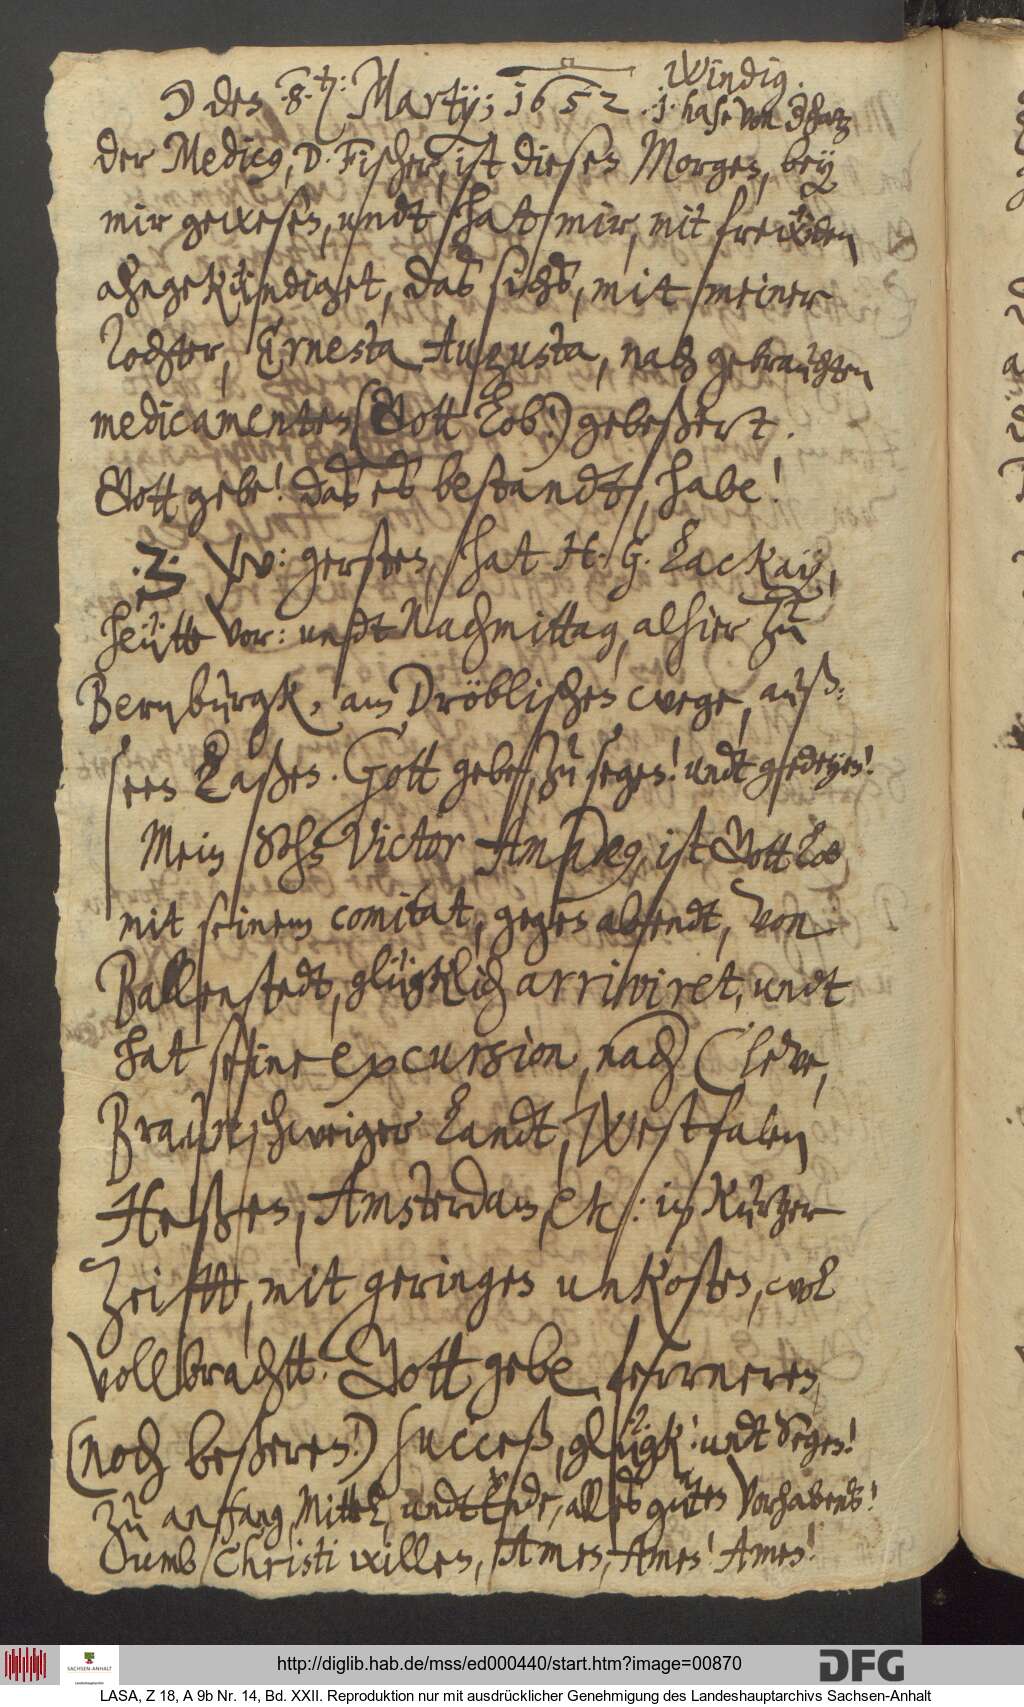 ☽ den 8.ten: Martij; 1652. Windig.
.1. hase von
der Medicus, D. Fischer, ist diesen Morgen, bey
mir gewesen, undt hat mir, mit frewden
ahngekündiget, das sichs, mit meiner
Tochter, Ernesta Augusta, nach gebrauchten
medicamenten (Gott Lob!) gebeßert.
Gott gebe! das es bestandt, habe!
.3. w: gersten, hat H. G. Lackay,
heütte vor: undt Nachmittag, alhier zu
Bernburgk, am Dröblischen wege, auß-
seen Laßen. Gott gebe, zu segen! undt gedeyen!
Mein Sohn Victor Amadeus, ist Gott Lob
mit seinem comitat, gegen abendt, von
Ballenstedt, glügklich arriviret, undt
hat seine excursion, nach Cleve,
Braunschweiger Landt, Westfalen
Heßen, Amsterdam, etc: in kurtzer
Zeitt, mit geringen unkosten, wol
vollbracht. Gott gebe, ferrneren
(noch beßeren!) succeß, glügk! undt Segen!
zu anfang, Mittel, undt Ende, alles guten Vorhabens!
umb Christi willen, Amen, Amen! Amen!
http://diglib.hab.de/mss/ed000440/start.htm?image=00870
SACHSEN-ANHALT
DFG
LASA, Z 18, A 9b Nr. 14, Bd. XXII. Reproduktion nur mit ausdrücklicher Genehmigung des Landeshauptarchivs Sachsen-Anhalt